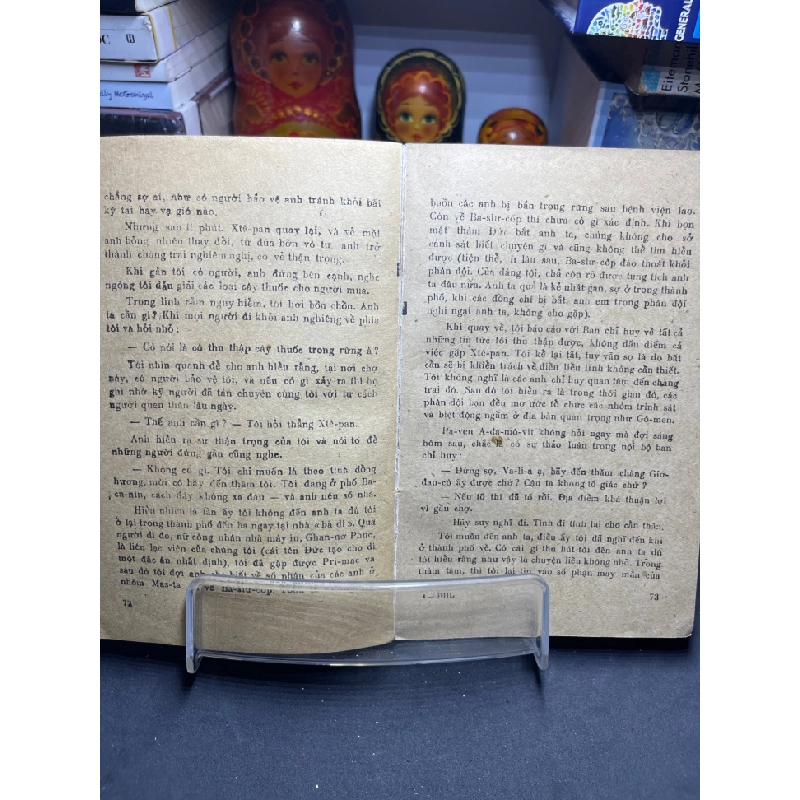 chẳng sợ ai, như có người bảo vệ anh tránh khỏi bất
kỳ tai hay vạ gió nào.
Nhưng sau ít phút, Xtê-pan quay lại, và vẻ mặt
anh bỗng nhiên thay đổi, từ đùa bỡn vô tư, anh trở
thành chàng trai nghiêm nghị, có vẻ thận trọng.
Khi gần tôi có người, anh đứng bên cạnh, nghe
ngóng tôi dẫn giải các loại cây thuốc cho người mua.
Trong linh cảm nguy hiểm, tôi hơi bồn chồn. Anh
ta cần gì? Khi mọi người đi khỏi anh nghiêng về phía
tôi và hỏi nhỏ:
— Cô nói là cô thu thập cây thuốc trong rừng à?
Tôi nhìn quanh để cho anh hiểu rằng, tại nơi chợ
này, có người bảo vệ tôi, và nếu có gì xảy ra thì họ
ghi nhớ kỹ người đã tán chuyện cùng tôi với tư cách
người quen thân lâu ngày.
— Thế anh cần gì? — Tôi hỏi thẳng Xtê-pan.
Anh hiểu ra sự thận trọng của tôi và nói to để
những người đứng gần cùng nghe.
— Không có gì. Tôi chỉ muốn là theo tình đồng
hương, mời cô hãy đến thăm tôi. Tôi đang ở phố
cách đây không xa đâu — và anh nêu số nhà.
Hiển nhiên là lần ấy tôi không đến anh ta dù tôi
ở lại trong thành phố đến ba ngày tại nhà «bà dì». Qua
người dì đó, nữ công nhân nhà máy in,
là liên lạc viên của chúng tôi (cái tên Đức tạo cho dì
một đặc ân nhất định), tôi đã gặp được Pri-mac và
sau đó tôi đợi anh cho biết về số phận của các anh ở
nhóm Mas-ta về Ba-sur-cốp.
72
buồn các anh bị bắn trong rừng sau bệnh viện lao.
Còn về Ba-sur-cốp thì chưa có gì xác định. Khi bọn
mật thám Đức bắt anh ta, chúng không cho sở
cảnh sát biết chuyện gì và cũng không thể tìm hiểu
được (tiện thể, ít lâu sau, Ba-sur-cốp đào thoát khỏi
phân đội. Của đáng tội, chả còn rõ được tung tích anh
ta đâu nữa. Anh ta quả là kẻ nhát gan, sợ ở trong thành
phố, khi các đồng chí bị bắt, anh em trong phân đội
nghi ngại anh ta, không cho gặp).
Khi quay về, tôi báo cáo với Ban chỉ huy về tất cả
những tin tức tôi thu thập được, không dấu diếm cả
việc gặp Xtê-pan. Tôi kể lại tất, tuy vẫn sợ là do bất
cẩn sẽ bị khiển trách về điều tiên tinh không cần thiết.
Tôi không nghĩ là các anh chỉ huy quan tâm đến chàng
trai đó. Sau đó tôi hiểu ra là trong thời gian đó, các
phân đội bạn đều mơ ước tổ chức các nhóm trinh sát
và biệt động ngầm ở địa bàn quan trọng như Gô-men.
Pa-ven A-đa-mô-vit không hỏi ngay mà đợi sáng
hôm sau, chắc là có sự thảo luận trong nội bộ ban
chỉ huy:
— Đừng sợ, Va-li-a ạ, hãy đến thăm chàng
đau-cô ấy được chứ? Cậu ta không tò giác chứ?
— Nếu tố thì đã tố rồi. Địa điểm khá thuận lợi
vì gần chợ.
Hãy suy nghĩ đi. Tính đi tính lại cho cẩn thận.
Tôi muốn đến anh, điều ấy tôi đã nghĩ đến khi
ở thành phố về. Có cái gì thu hút tôi đến anh ta dù
tôi hiểu rằng như vậy là chuyện liều không nhỏ. Trong
thâm tâm, thì tôi lại tin vào số phận may mắn của
73